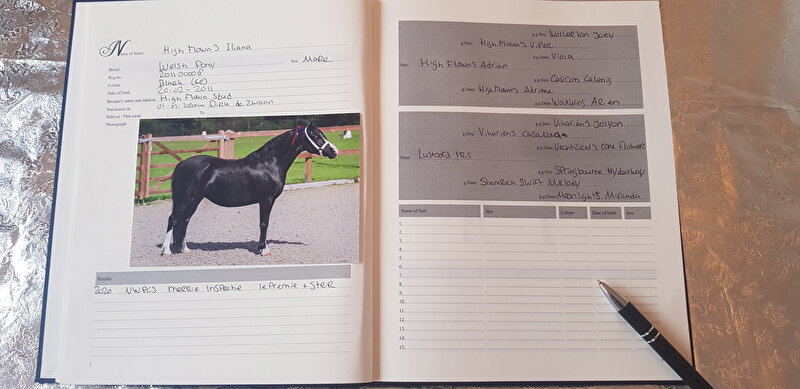 Name of horse High Flown's Iliana
Breed Welsh Pony Sex Mare
Reg.no 201100008
Colour Black (Ee)
Date of birth 20-02-2011
Breeder's name and address High Flown Stud
Purchased on 04-01-2020 From Dirk de Zwaan
Sold on / Past away To
Photograph
Results
2020 NWPCS merrie inspectie 1e Premie + STER
1
g.g.Sire: Wolverton Joey
g.Sire: High Flown's Viper
g.g.Dam: Viola
Sire: High Flown's Adrian
g.g.Sire: Coscob Calenig
g.Dam: High Flown's Adriene
g.g.Dam: Waxwing Arien
g.g.Sire: Vihariens Jolyon
g.Sire: Vihariens Casanova
g.g.Dam: Vechtzicht's Cone Flower
Dam: Lustoord Iris
g.g.Sire: Springbourne Hyderabany
g.Dam: Shamrock Swift Melody
g.g.Dam: Moonlight's Miranda
Name of foal Sire Colour Date of birth Sex
1.
2.
3.
4.
5.
6.
7.
8.
9.
10.
11.
12.
13.
14.
15.